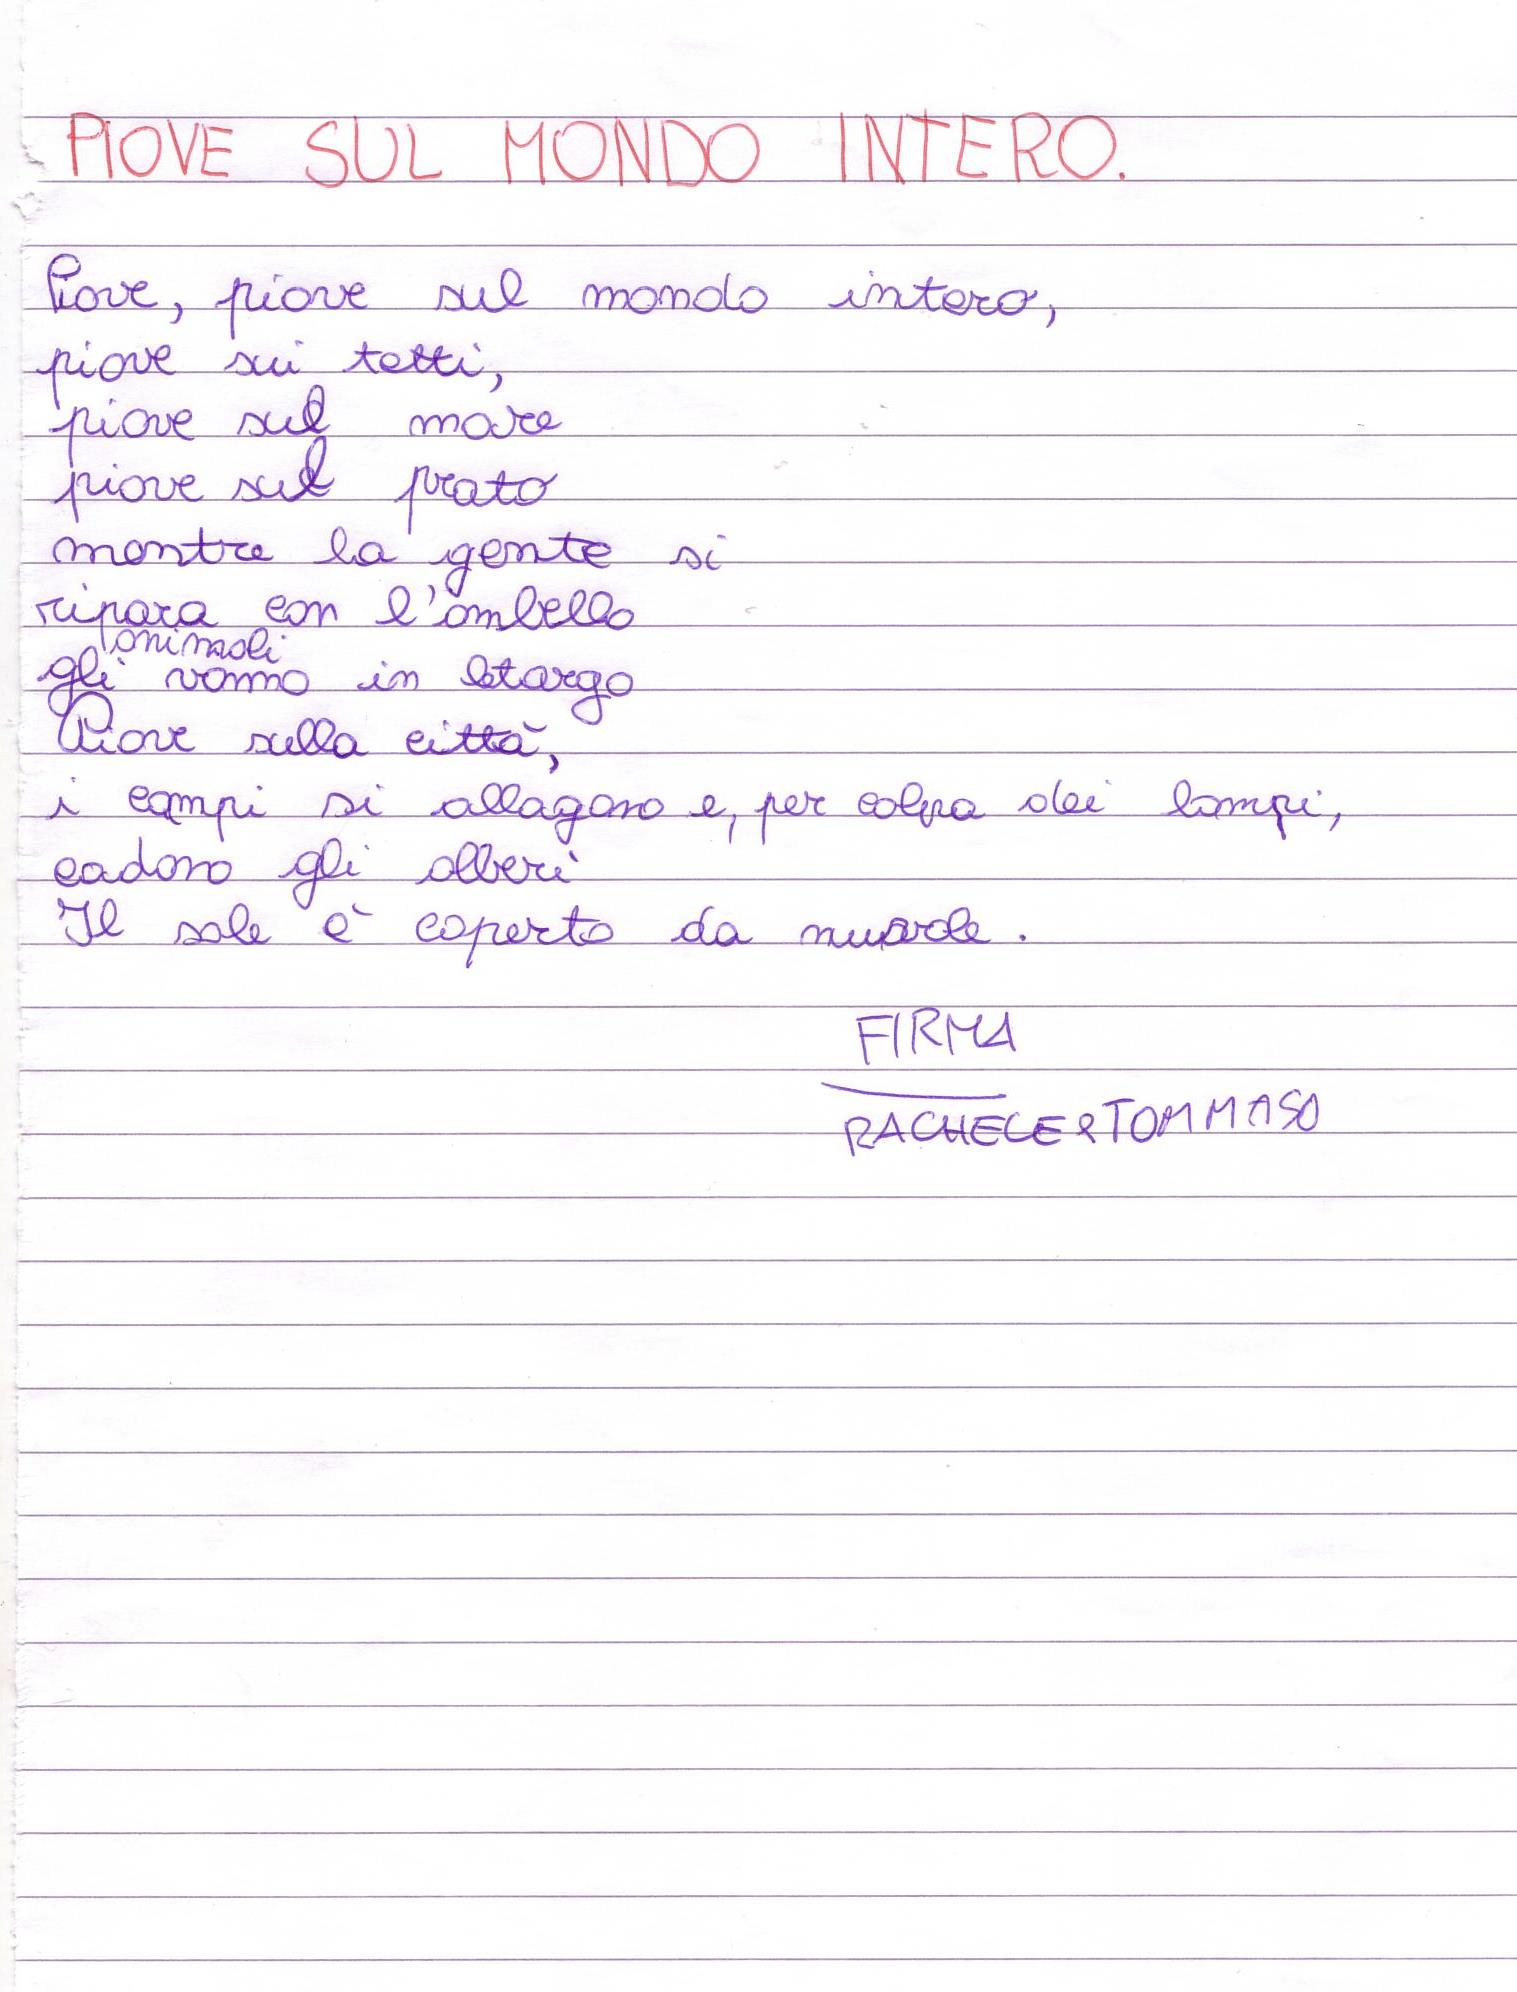 PIOVE SUL MONDO INTERO.
Piove, piove sul mondo intero,
piove sui tetti,
piove sul mare
piove sul prato
mentre la gente si
ripara con l'ombello
gli animali vanno in letargo
Piove sulla città,
i campi si allagano e, per colpa dei lampi,
cadono gli alberi
Il sole è coperto da nuvole.
FIRMA
RACHELE e TOMMASO